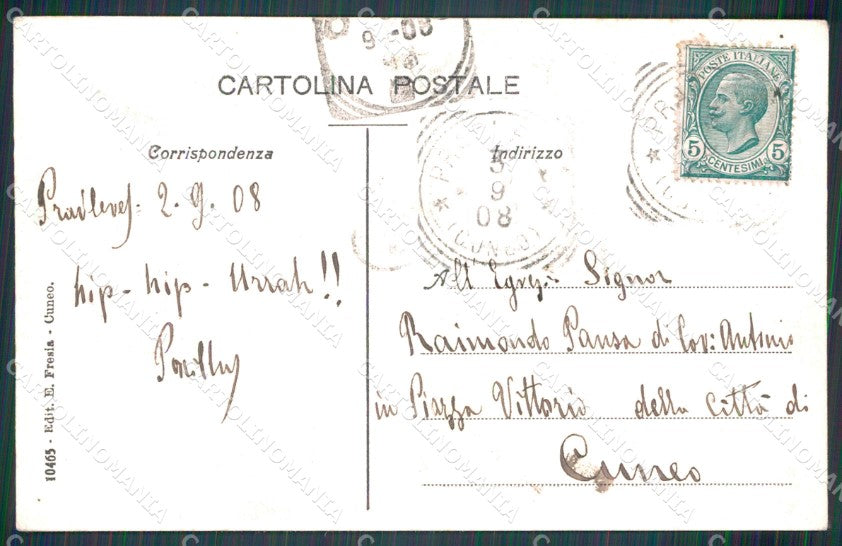 9 - 08
CARTOLINA POSTALE
Corrispondenza
Indirizzo
POSTE ITALIANE
5 CENTESIMI 5
PRA
3
9
08
(CUNEO)
Pradleves. 2. 9. 08
hip - hip - Urrah!!
All Egregio Signor
Raimondo Pansa di Cav: Antonio
in Piazza Vittorio della città di
Cuneo
10465 - Edit. E. Fresia - Cuneo.
CARTOLINOMANIA